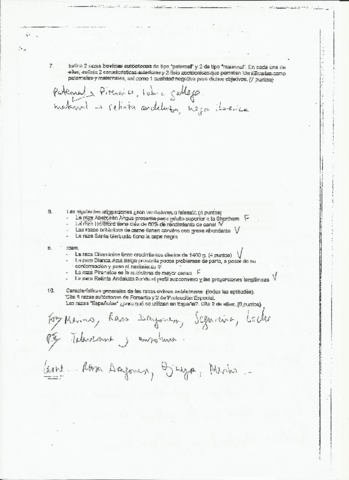 7. Indica 2 razas bovinas autóctonas de tipo "paternal" y 2 de tipo "maternal". En cada una de
ellas, señala 2 características exteriores y 2 que permitan como
paternales y maternales, así como 1 cualidad negativa para dichos objetivos. (7 puntos)
paternal → Pirenaica, rubia gallega
maternal → retinta andaluza, negra ibérica
8. Las siguientes afirmaciones ¿son verdaderas o falsas? (4 puntos)
- La raza Aberdeen Angus presenta peso adulto superior a la Shorthorn F
- La raza tiene más del 60% de rendimiento de canal V
- Las razas británicas de carne tienen canales con grasa abundante V
- La raza Santa Gertrudis tiene la capa negra
9. Idem.
- La raza Charolais tiene crecimientos diarios de 1400 g. (4 puntos) V
- La raza Blanca Azul Belga presenta pocos problemas de parto, a pesar de su
conformación y peso al nacimiento F
- La raza Pirenaica es la autóctona de mayor censo F
- La raza Retinta Andaluza tiene el perfil subconvexo y las proporciones longilíneas V
10. Características generales de las razas ovinas autóctonas. (todas las aptitudes).
Cita 4 razas autóctonas de Fomento y 2 de Protección Especial.
Las razas "Españolas" ¿para qué se utilizan en España?. Cita 3 de ellas. (8 puntos)
Fo) Merina, Rasa Aragonesa, Segureña, Lacha
PE) Talaverana y
Rasa Aragonesa, Ojinegra, Merina ...